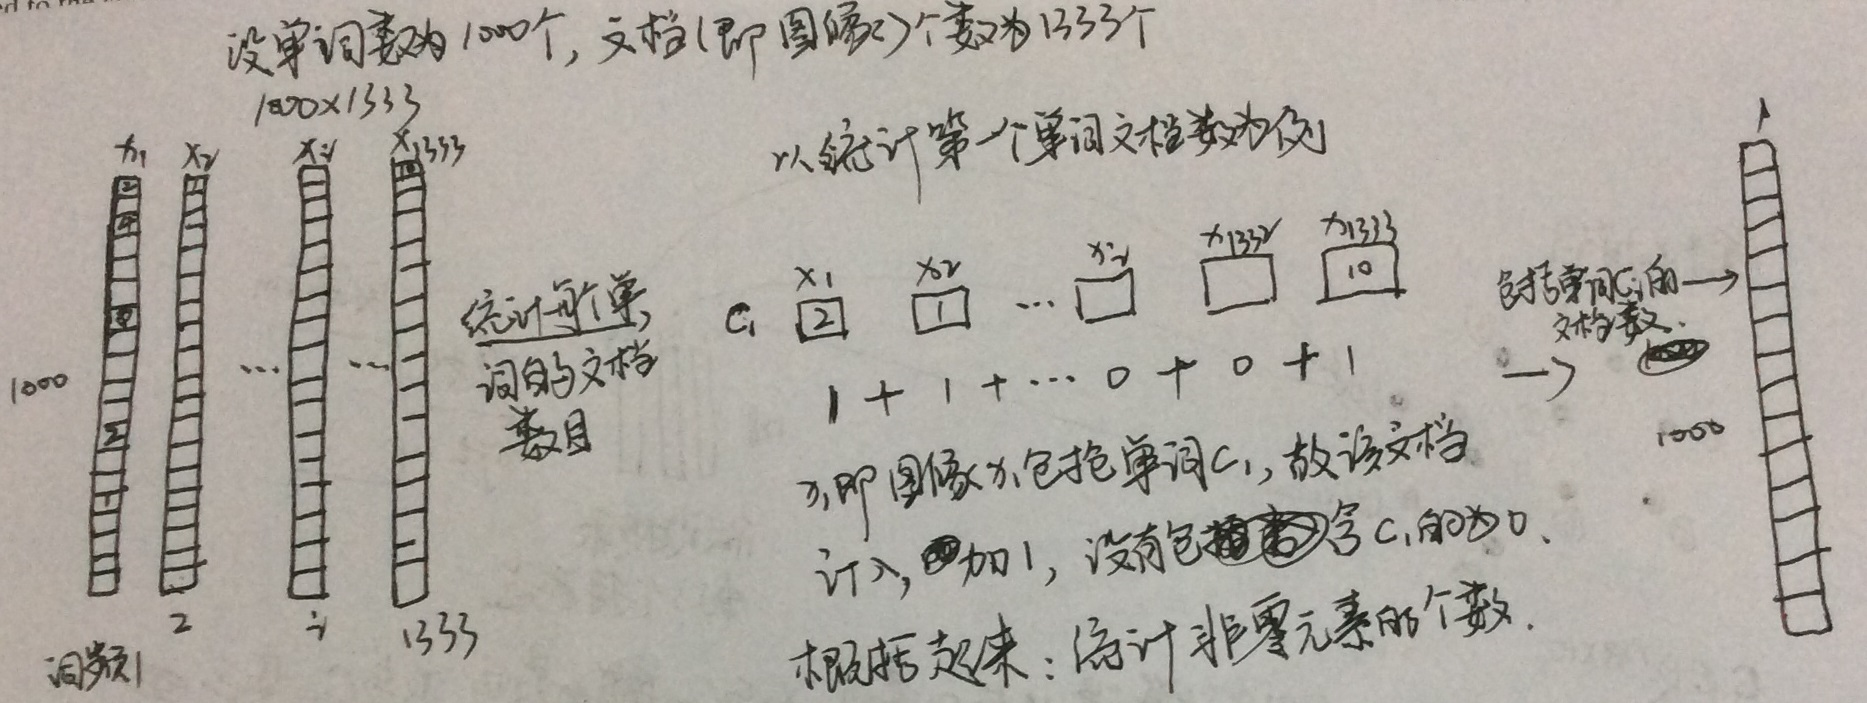 设单词数为1000个,文档(即图像)个数为1333个
1000×1333
x1 x2 xi x1333
以统计第一个单词文档数为例
x1 x2 xi x1332 x1333
C1 2 1 … 10
统计每个单
词的文档
数目
包括单词Ci的
文档数.
1 + 1 + … 0 + 0 + 1
1000
… …
1000
x1即图像x1包括单词C1,故该文档
计入,加1,没有包含C1的为0.
概括起来:统计非零元素的个数.
词频1 2 i 1333